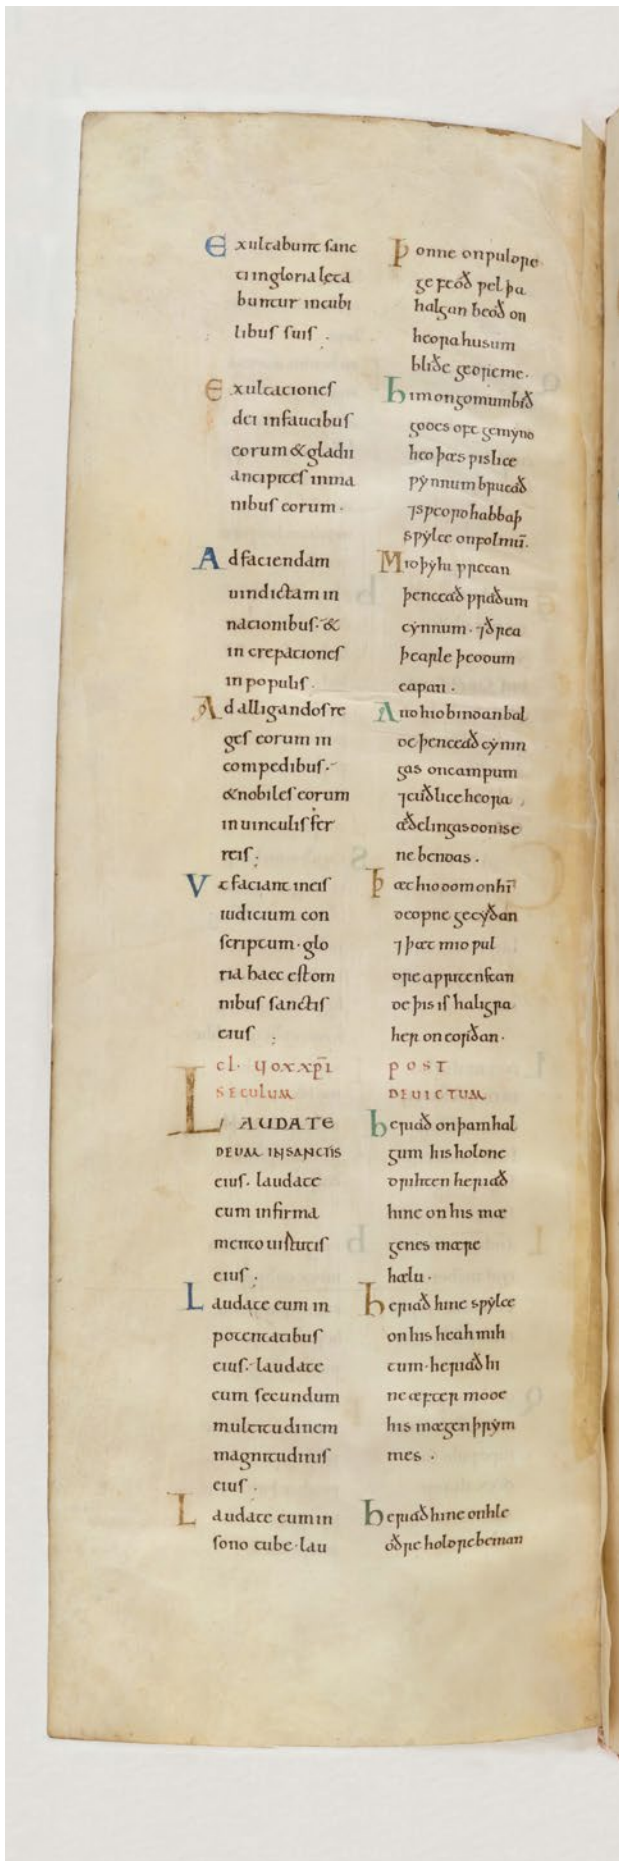 Exultabunt sanc
ti in gloria leta
buntur in cubi
libus suis.
Exultationes
dei in faucibus
eorum & gladii
ancipites in ma
nibus eorum.
Ad faciendam
uindictam in
nationibus. &
in crepationes
in populis.
Ad alligandos re
ges eorum in
compedibus.
& nobiles eorum
in uinculis fer
reis.
Vt faciant in eis
iudicium con
scriptum. glo
ria haec est om
nibus sanctis
eius
SECULUM
LAUDATE
DEUM IN SANCTIS
eius. laudate
eum in firma
mento uirtutis
eius.
Laudate eum in
potentatibus
eius. laudate
eum secundum
multitudinem
magnitudinis
eius.
Laudate eum in
sono tube. lau
Þonne on ƿuldre
ge feoð ƿel þa
halgan beoð on
heora husum
bliðe
him on gomum bið
godes oft gemynd
heo þæs ƿislice
ƿynnum brucað
⁊ sƿeord habbaþ
sƿylce on folmū.
Mid þy hi ƿrecan
þenceað ƿraðum
cynnum. ⁊ ðrea
þearle þeodum
eaƿan.
And hio bindan bal
de þenceað cynin
gas on campum
⁊ cuðlice heora
æðelingas don ise
ne bendas.
Þæt hio dom on hī
deopne gecyðan
⁊ þæt mid ƿul
dre aƿriten stan
de þis is haligra
her on eorðan.
POST
DEUICTUM
heriað on þam hal
gum his holdne
drihten heriað
hine on his mæ
genes mære
hælu.
heriað hine sƿylce
on his heah mih
tum. heriað hi
ne æfter mode
his mægen þrym
mes.
heriað hine on hle
oðre holdre beman